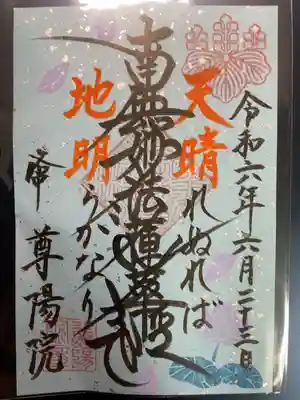 令和六年六月二十三日
天晴れぬれば
南無妙法蓮華経
地明らかなり
尊陽院